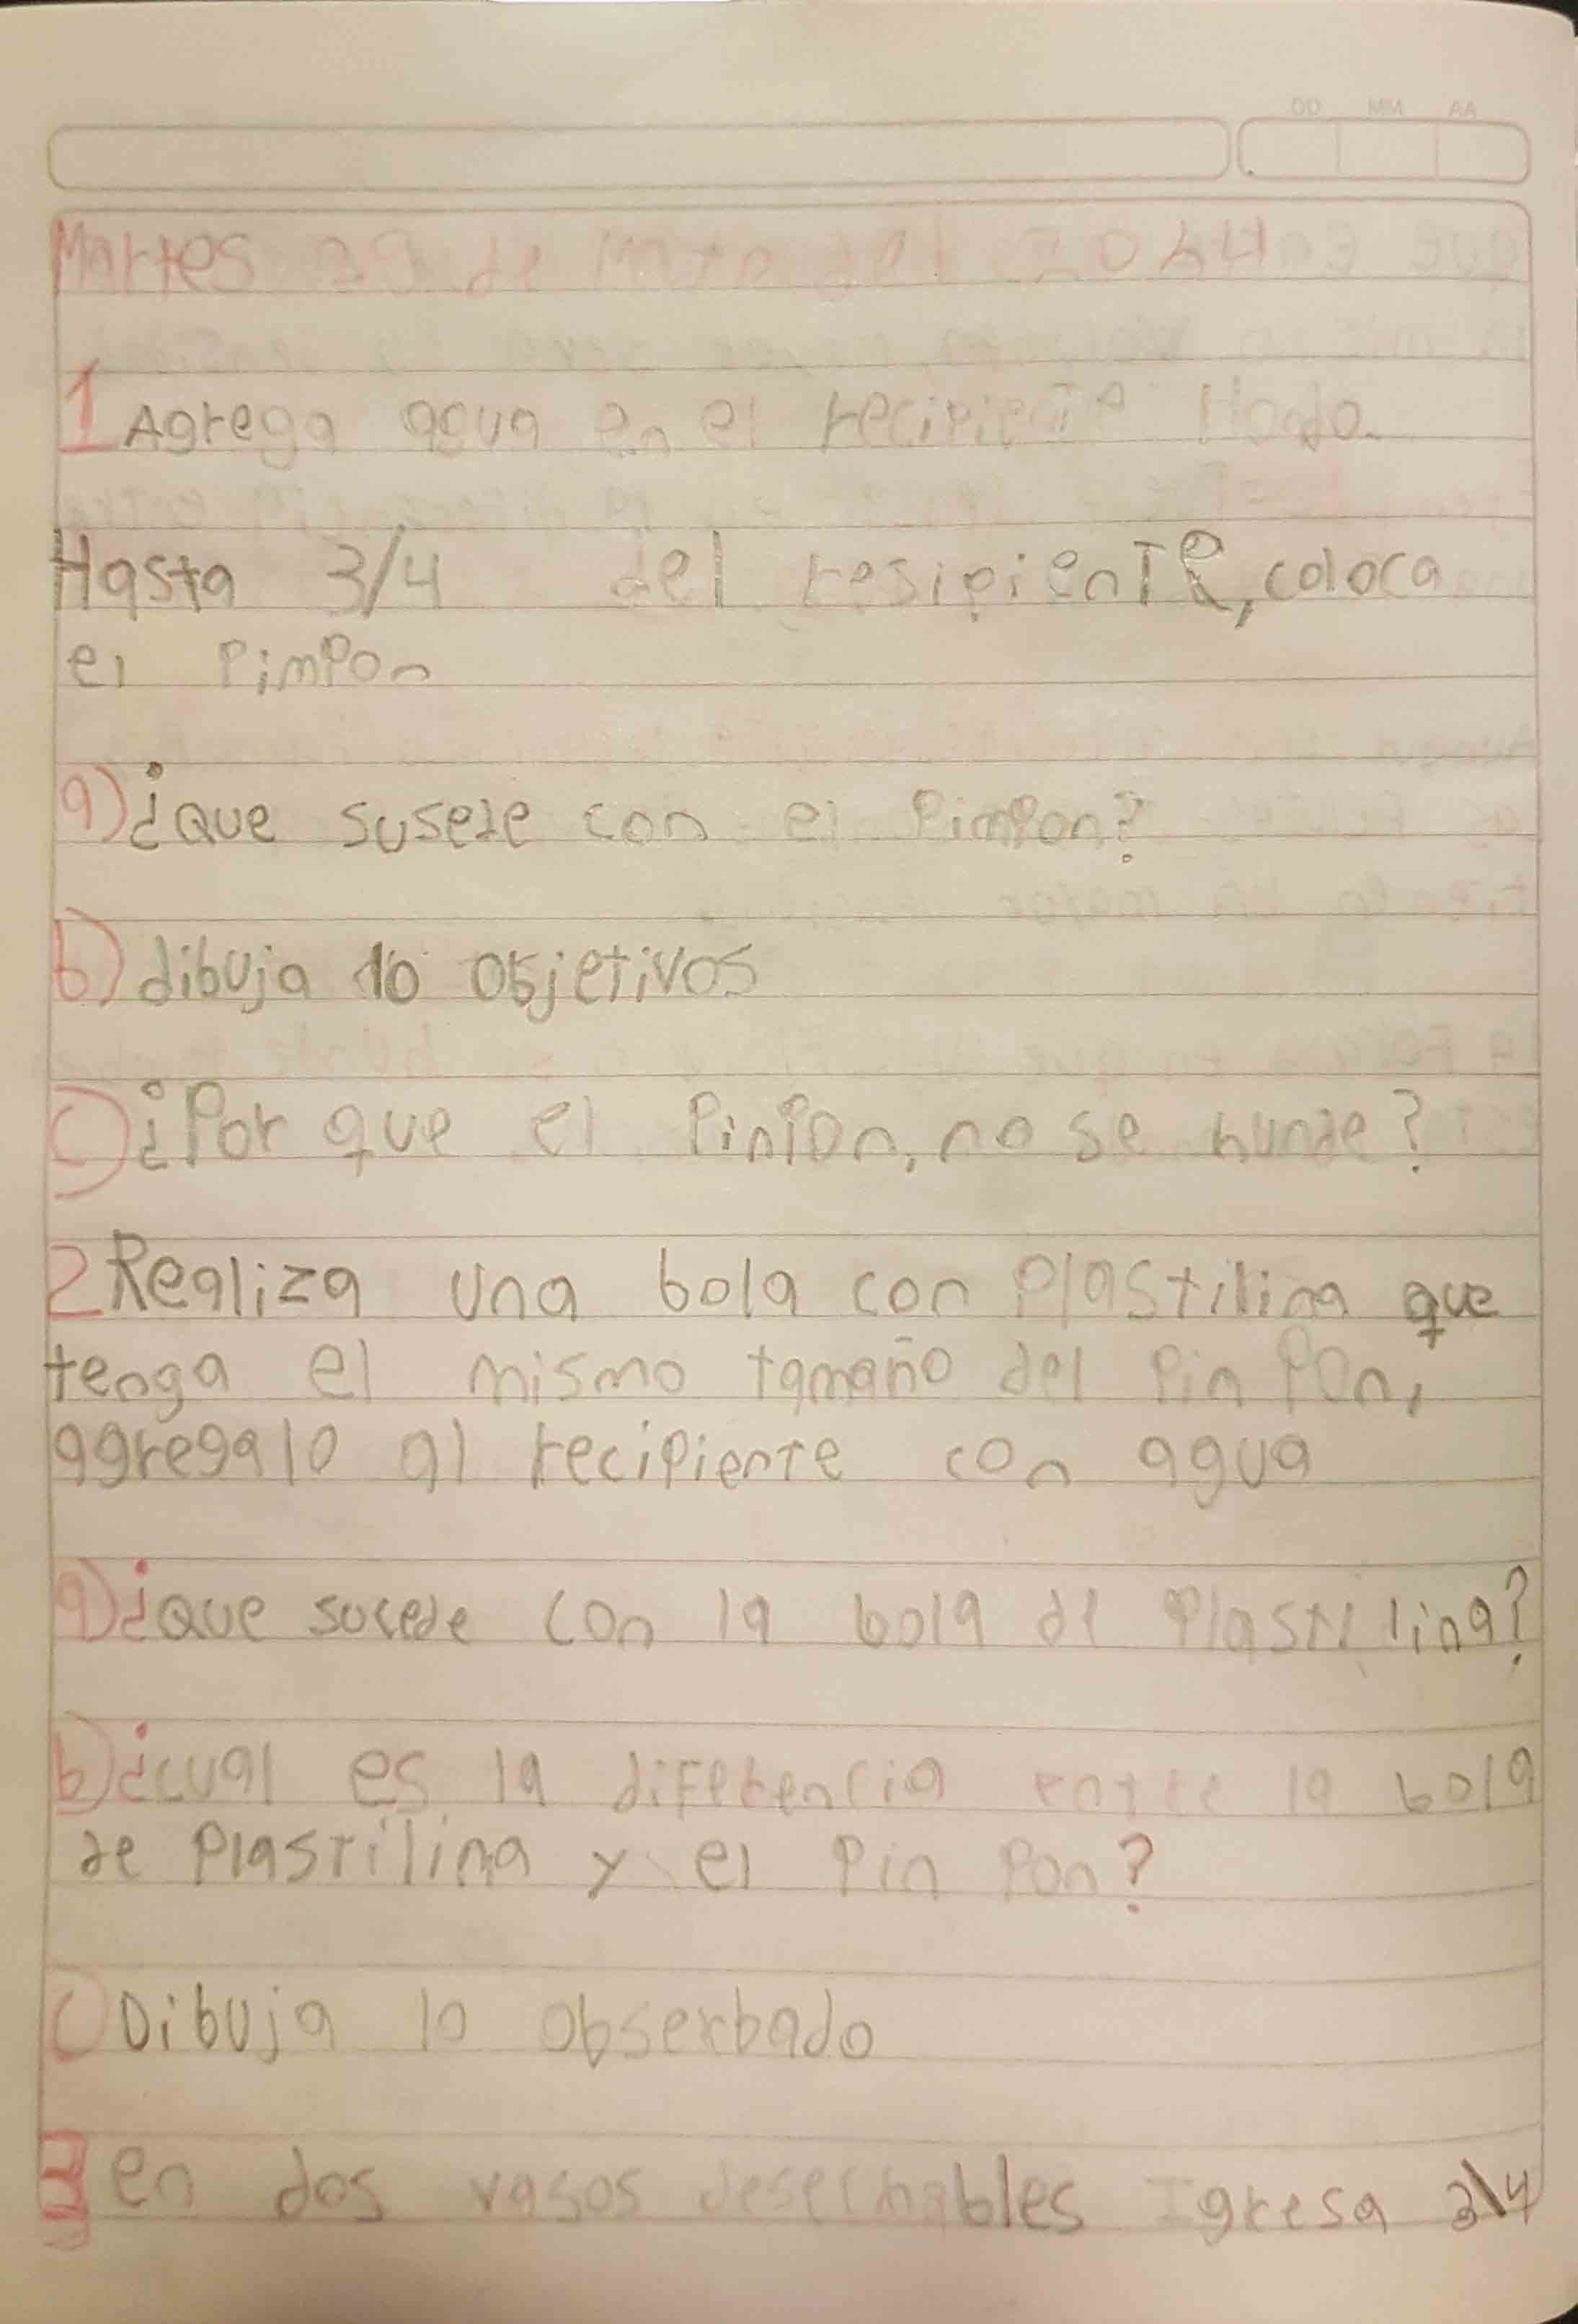 DD MM AA
Martes de
1 Agrega agua en el recipiente Hondo.
Hasta 3/4 del resipienTe, coloca
el PimPon
a) ¿que susede con el PimPon?
b) dibuja 10 objetivos
c) ¿Por que el PinPon, no se hunde?
2 Realiza una bola con Plastilina que
tenga el mismo tamaño del Pin Pon,
agregalo al recipiente con agua
a) ¿que sucede con la bola de Plastilina?
b) ¿cual es la diferencia entre la bola
de Plastilina y el Pin Pon?
c) Dibuja lo obserbado
3 en dos vasos desechables Igresa 3/4